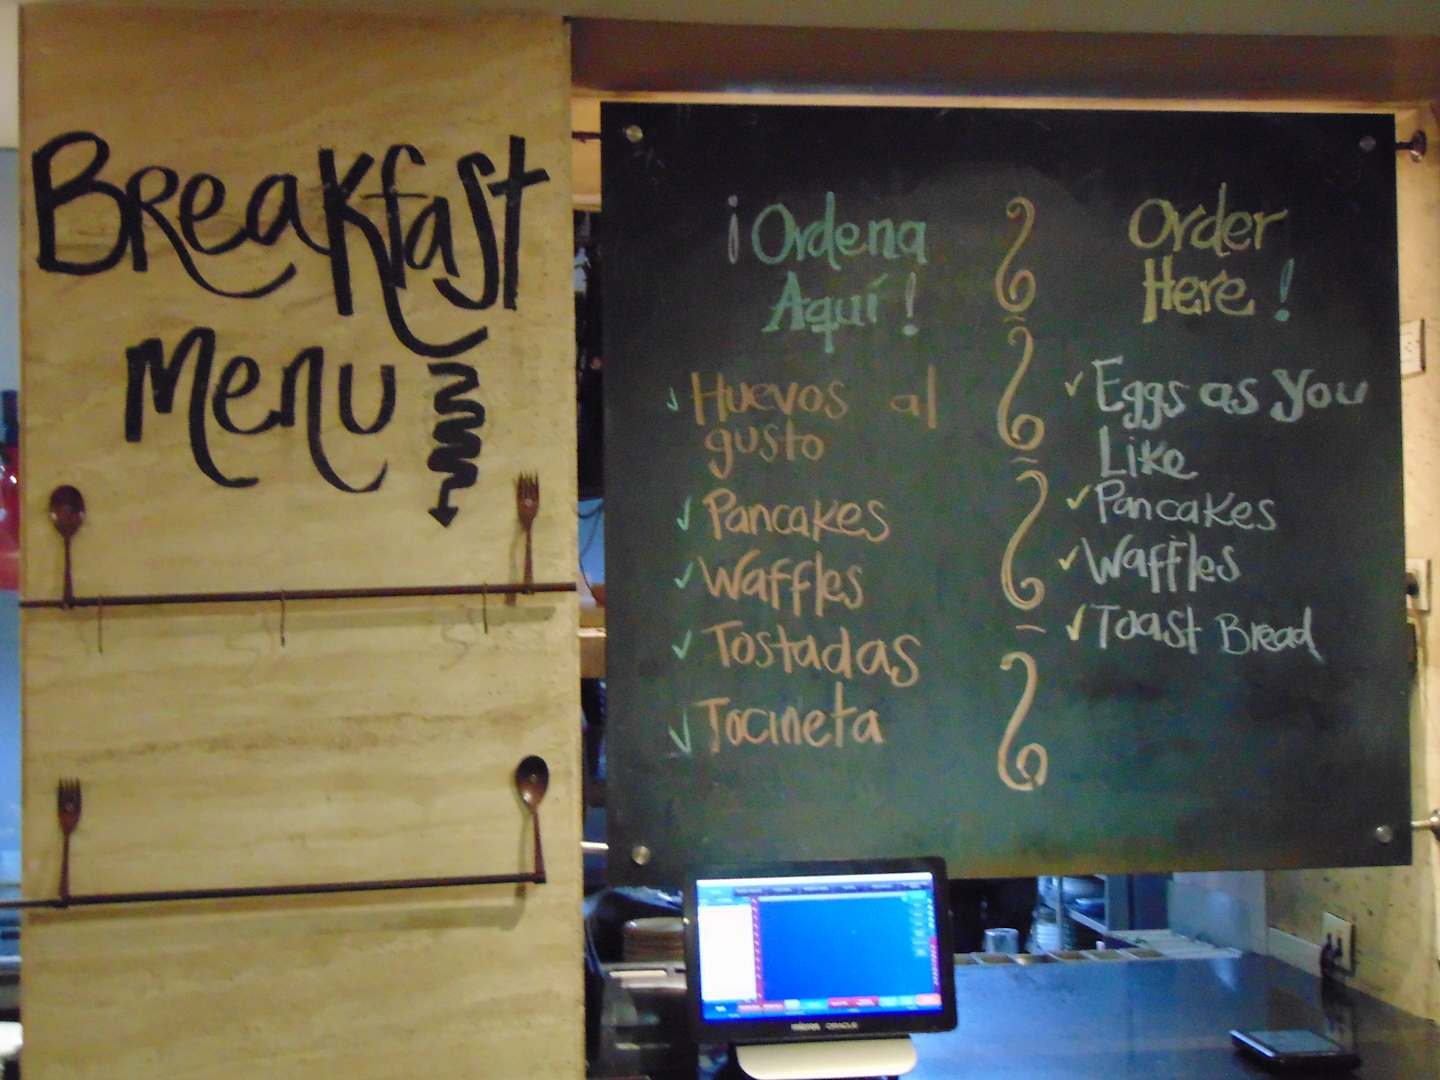 Breakfast
Menu
¡Ordena
Aquí!
Huevos al
gusto
Pancakes
Waffles
Tostadas
Tocineta
Order
Here!
Eggs as You
Like
Pancakes
Waffles
Toast Bread
ORACLE